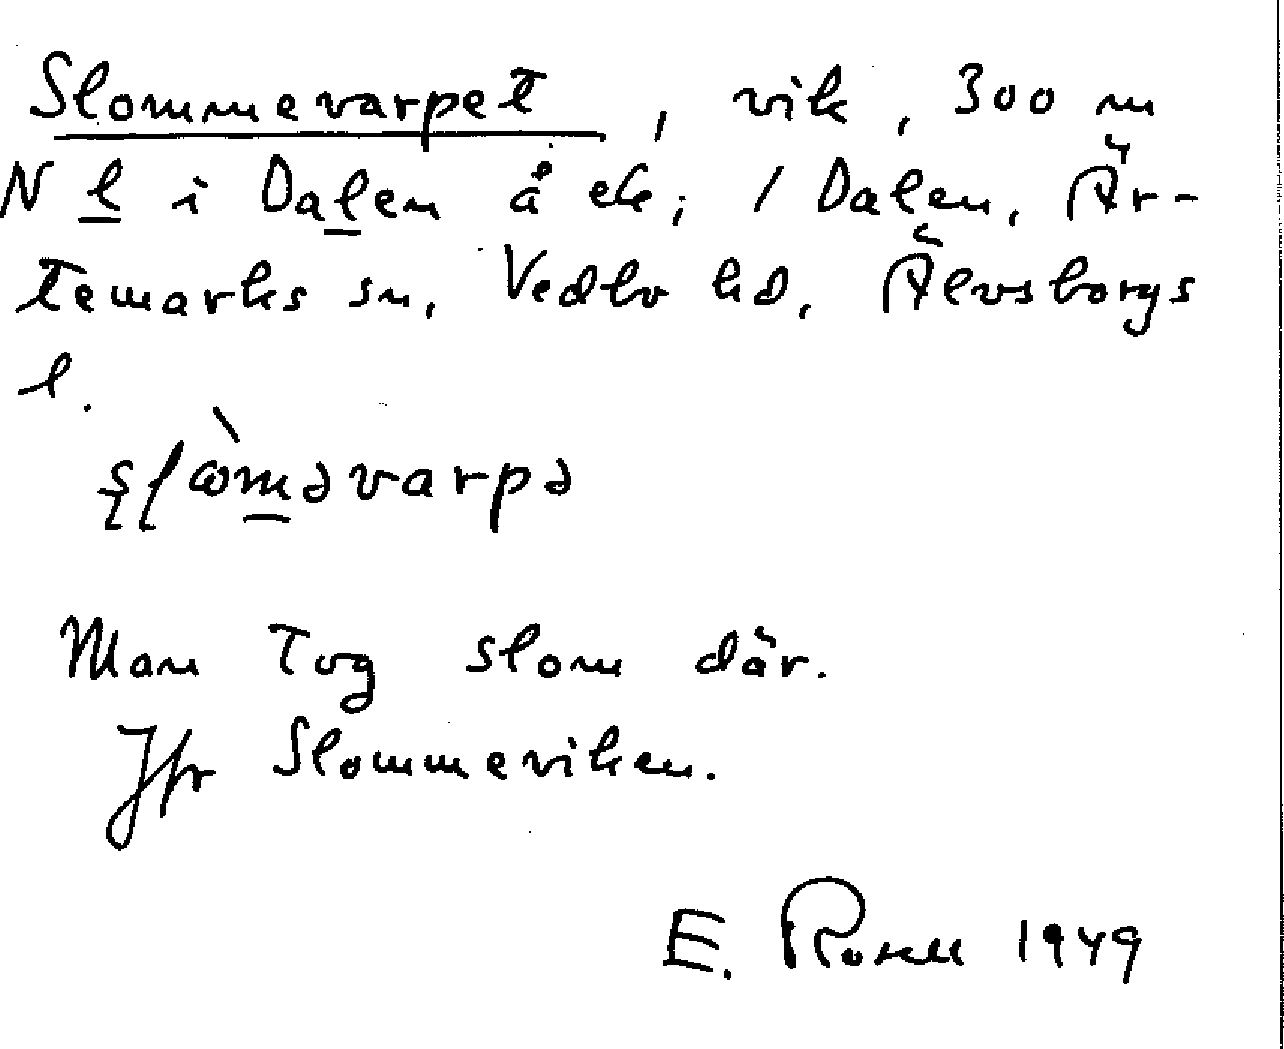 Slommevarpet, vik, 300 m
N l i Dalen å ek; / Dalen, Är-
temarks sn, Vedbo hd, Älvsborgs
l.
Man tog slom där.
Jfr Slommeviken.
E. Rosell 1949